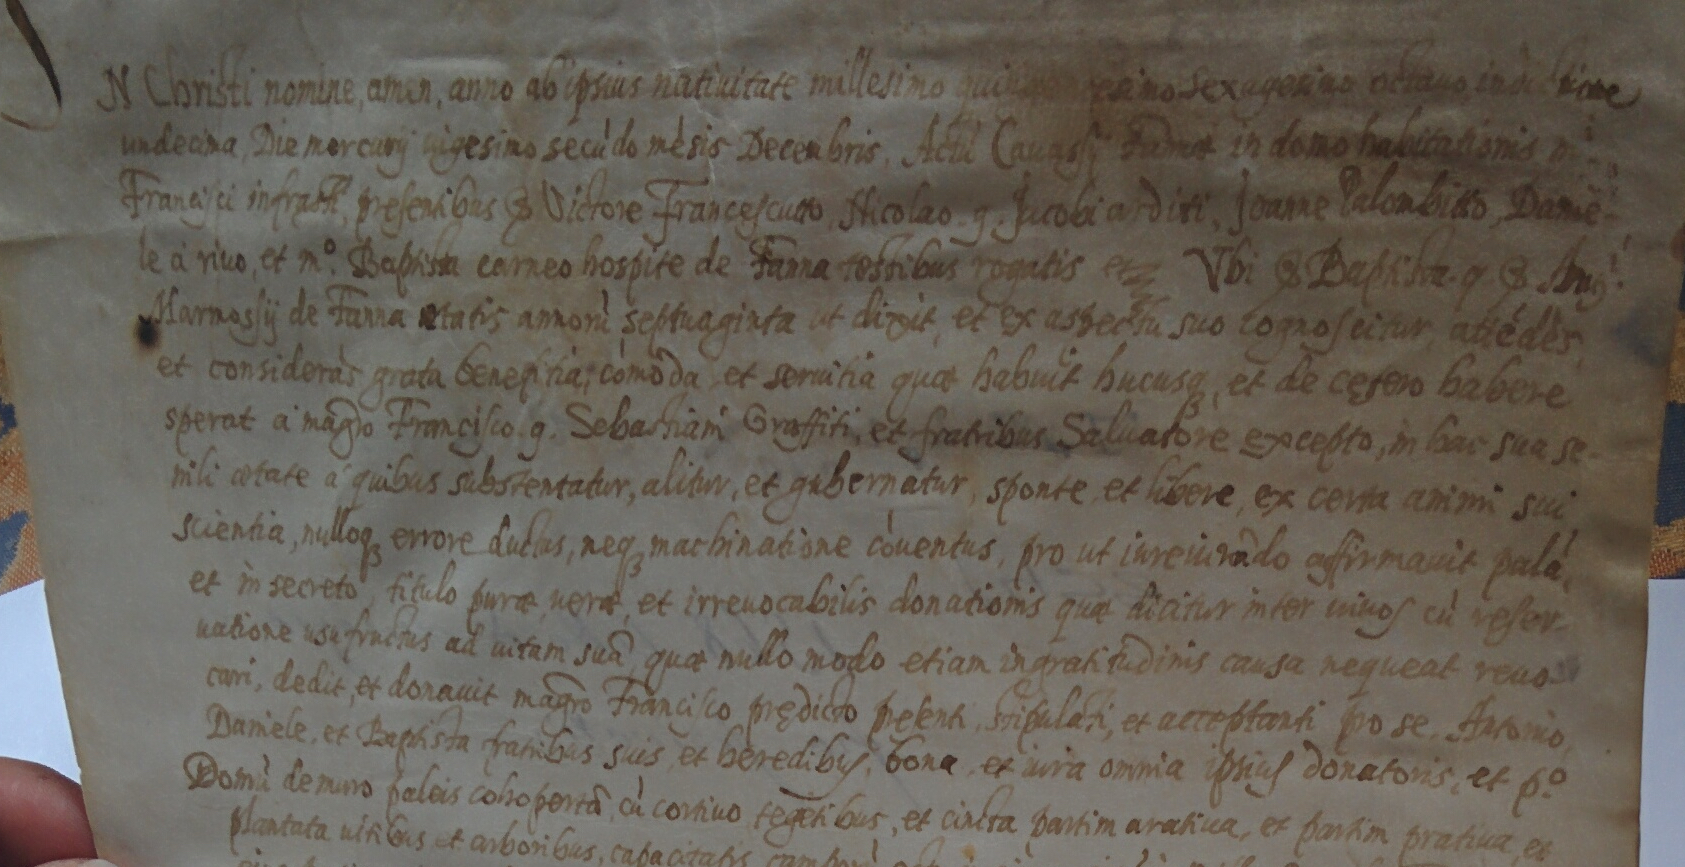 N Christi nomine, amen, anno ab ipsius natiuitate millesimo sexagesimo octauo, indictione
undecima, Die mercurij uigesimo secùdo mèsis Decembris, Actù Cauassij in domo habitationis
Francisci infrastī, presentibus Victore Francescutto, Nicolao q. Jacobi arditi, Joanne Palombitto, Danie-
le à riuo, et m.º Baptista corneo hospite de Fanna testibus rogatis et Vbi Baptista q.
Marnossij de Fanna ætatis annorù septuaginta ut dixit, et ex aspectu suo cognoscitur, attédès,
et consideràs grata beneficia, cómoda, et seruitia quæ habuit hucusq, et de cętero habere
sperat à magrō Francisco q. Sebastiani Graffiti, et fratribus Saluatore excepto, in hac sua se-
nili ætate à quibus substentatur, alitur, et gubernatur, sponte et libere, ex certa animi sui
scientia, nulloq errore ductus, neq machinatione cóuentus, pro ut iureiurādo affirmauit palá,
et in secreto titulo puræ, ueræ, et irreuocabilis donationis quæ dicitur inter uiuos cù reser-
uatione usufructus ad uitam suā, quæ nullo modo etiam ingratitudinis causa nequeat reuo-
cari, dedit, et donauit magrō Francisco prędicto pesenti, stipulāti, et acceptanti pro se, Antonio,
Daniele, et Baptista fratribus suis, et heredibus, bona, et iura omnia ipsius donatoris, et p.º
Domù de muro paleis cohopertā, cù cortiuo tegetibus, et cincta partim aratiua, et partim pratiua et
plantata uitibus et arboribus, capacitatis camporù